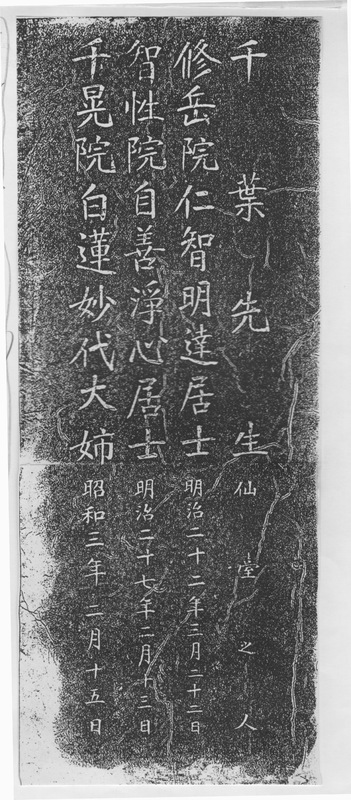 千葉先生 仙臺之人
修岳院仁智明達居士 明治二十二年三月二十二日
智性院自善淨心居士 明治二十七年二月十三日
千晃院白蓮妙代大姉 昭和三年二月十五日